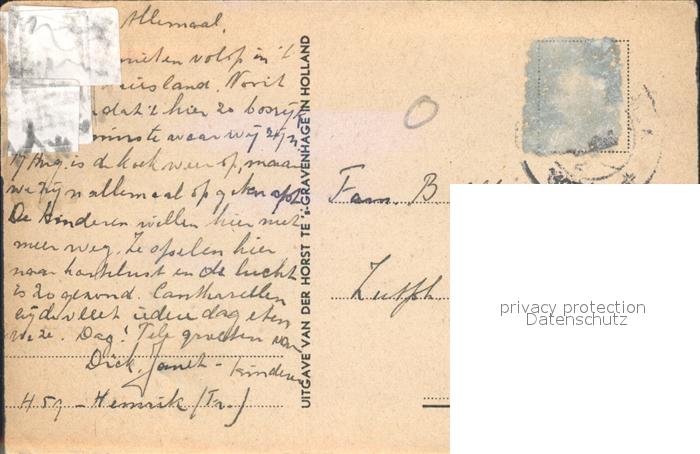 Allemaal,
nieten volop in 't
iesland. Nooit
dat 't hier zo bosrijk
minste waar wij zijn
17 Aug. is de koek weer op, maar
we zijn allemaal op geknapt
De kinderen willen hier niet
meer weg. Ze spelen hier
naar hartelust en de lucht
is zo gezond. Cantharellen
iedere dag eten
we ze. Dag! Vele groeten van
Dick, Janet - kinderen
459 - Hemrik (Fr.)
UITGAVE VAN DER HORST TE 's-GRAVENHAGE IN HOLLAND
Fam. B
Zutph
privacy protection
Datenschutz